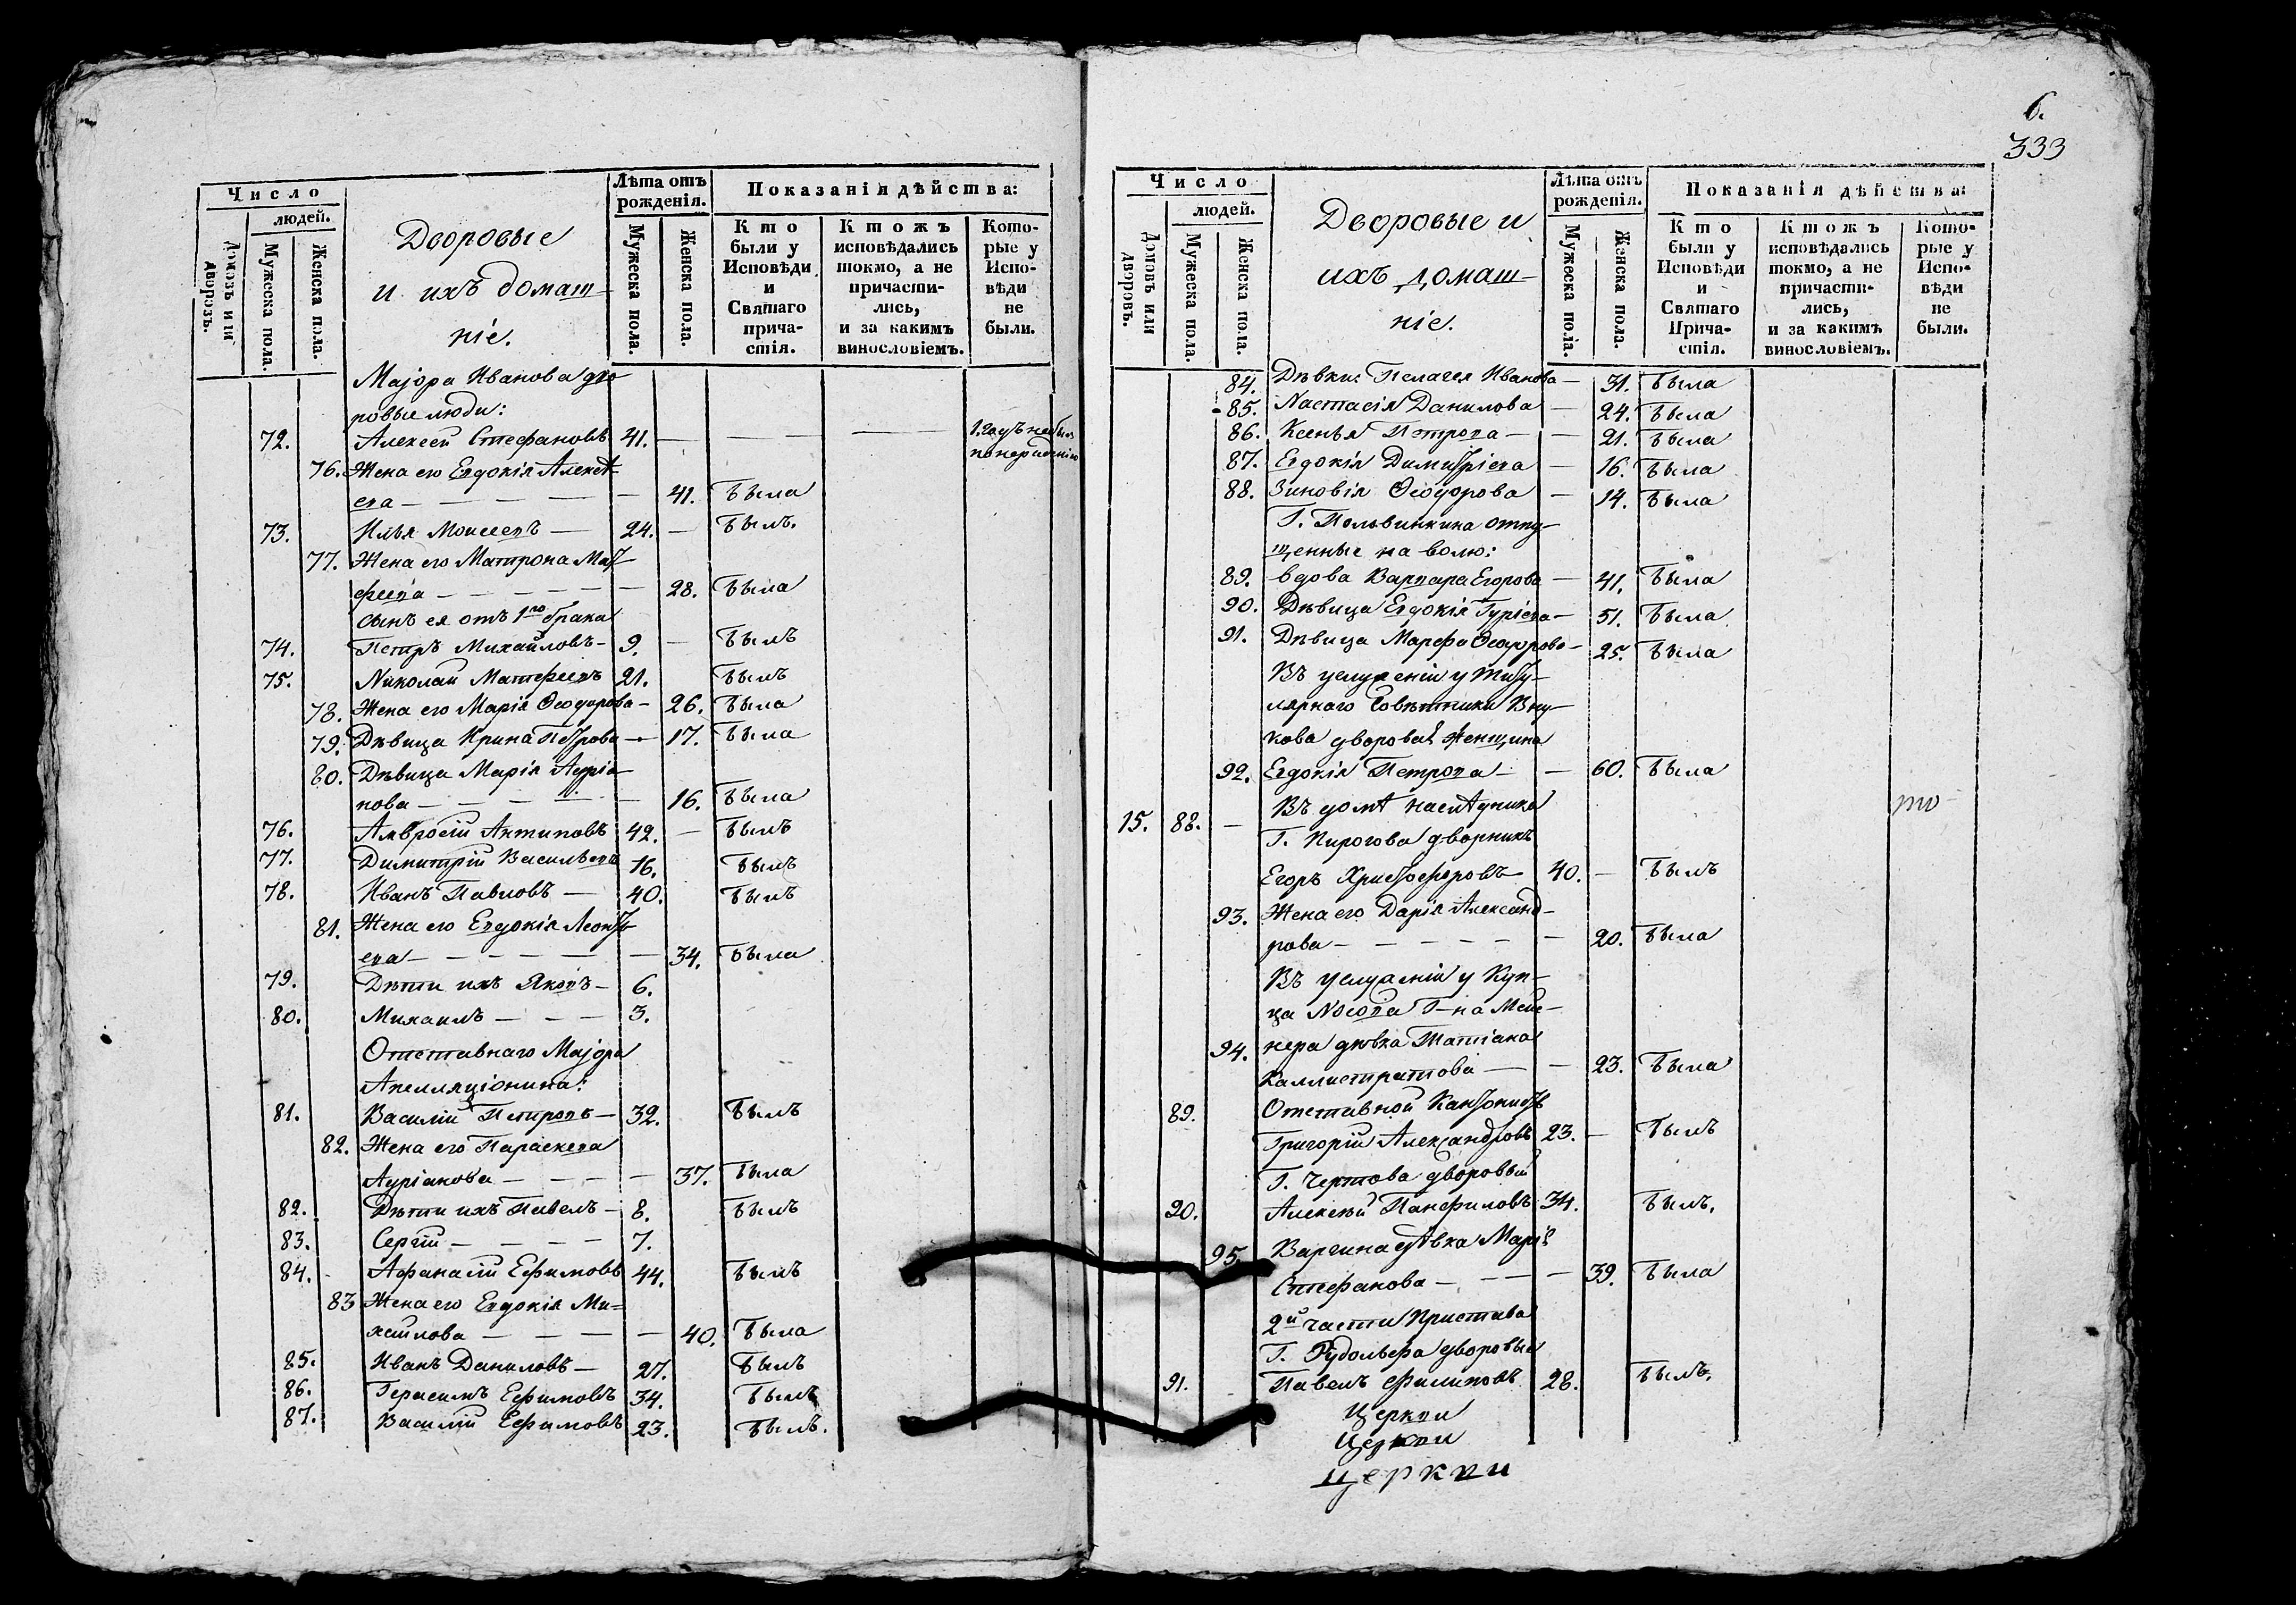 Число
людей.
Домовъ или дворовъ.
Мужеска пола.
Женска пола.
Дворовые
и ихъ домаш-
ніе.
Лѣта отъ рожденія.
Мужеска пола.
Женска пола.
Показанія дѣйства:
Кто были у Исповѣди и Святаго причастія.
Ктожъ исповѣдались токмо, а не причастились, и за какимъ винословіемъ.
Которые у Исповѣди не были.
Маіора Иванова дво-
ровые люди:
72. Алексей Стефановъ 41. — — — — 1. годъ не былъ
по нераденію
76. Жена его Евдокія Алексѣ-
ева — — — — — 41. была
73. Илья Моисеевъ — 24. — былъ.
77. Жена его Матрона Мат-
феева — — — — — 28. была
сынъ ея отъ 1го брака
74. Петръ Михайловъ — 9. — былъ
75. Николай Матфеевъ 21. былъ
78. Жена его Марія Ѳеодорова — 26. была
79. Дѣвица Ирина Петрова — 17. была
80. Дѣвица Марія Адріа-
нова — — — — — 16. была
76. Амвросій Антиповъ 42. — былъ
77. Димитрій Васильевъ 16. былъ
78. Иванъ Павловъ — 40. былъ
81. Жена его Евдокія Леонть-
ева — — — — — — 34. была
79. Дѣти ихъ Яковъ — 6.
80. Михаилъ — — — 3.
Отставнаго Маіора
Апелляціонина:
81. Василій Петровъ — 32. былъ
82. Жена его Параскева
Адріанова — — — — 37. была
82. Дѣти ихъ Павелъ — 8. былъ
83. Сергій — — — — 7.
84. Афанасій Ефимовъ 44. былъ
83 Жена его Евдокія Ми=
хайлова — — — — — 40. была
85. Иванъ Даниловъ — 27. былъ
86. Герасимъ Ефимовъ 34. былъ
87. Василій Ефимовъ 23. былъ.
6.
333
Число
людей.
Домовъ или дворовъ.
Мужеска пола.
Женска пола.
Дворовые и
ихъ домаш-
ніе.
Лѣта отъ рожденія.
Мужеска пола.
Женска пола.
Показанія дѣйства:
Кто были у Исповѣди и Святаго Причастія.
Ктожъ исповѣдались токмо, а не причастились, и за какимъ винословіемъ.
Которые у Исповѣди не были.
84. Дѣвки: Пелагея Иванова — 31. была
85. Настасія Данилова — 24. была
86. Ксенья Петрова — — 21. была
87. Евдокія Димитріева — 16. была
88. Зиновія Ѳеодорова — 14. была
Г. Польвинкина отпу-
щенные на волю:
89. вдова Варвара Егорова — 41. была
90. Дѣвица Евдокія Гуріева — 51. была
91. Дѣвица Марфа Ѳеодорова — 25. была
Въ услуженіи у титу-
лярнаго Совѣтника Вну-
кова дворовая женщина
92. Евдокія Петрова — — 60. была
15. 88. — Въ домѣ наслѣдника
Г. Пирогова дворникъ
Егоръ Христофоровъ 40. — былъ
93. Жена его Дарія Александ-
рова — — — — — — 20. была
Въ услуженіи у Куп-
ца Носова Г-на Мей-
94. нера дѣвка Татіана
Каллистратова — — 23. была
89. Отставной Кантонистъ
Григорій Александровъ 23. — былъ
Г. Чертова дворовый
90. Алексѣй Панфиловъ 34. былъ.
95. Варгина дѣвка Марія
Стефанова — — — — 39. была
2й части Пристава
Г. Рудольфа дворовый
91. Павелъ Филиповъ 28. былъ.
Церкви
Церкви
Церкви